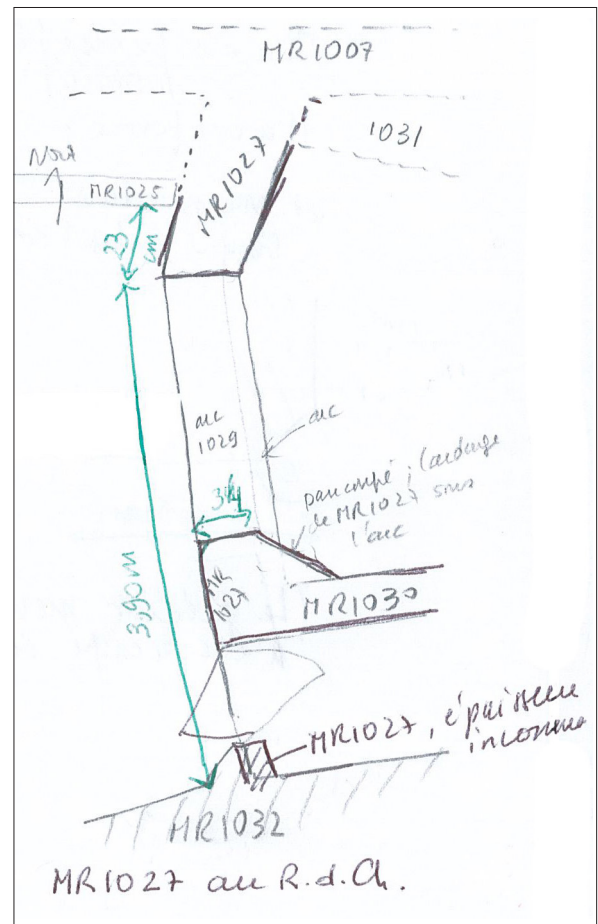 MR1007
1031
Nord
MR1025
MR1027
23
cm
arc
1029
arc
34
pan coupé, l'ardage
de MR1027 sous
l'arc
MR
1027
MR1030
3,90m
MR1027, épaisseur
inconnue
MR1032
MR1027 au R.d.Ch.